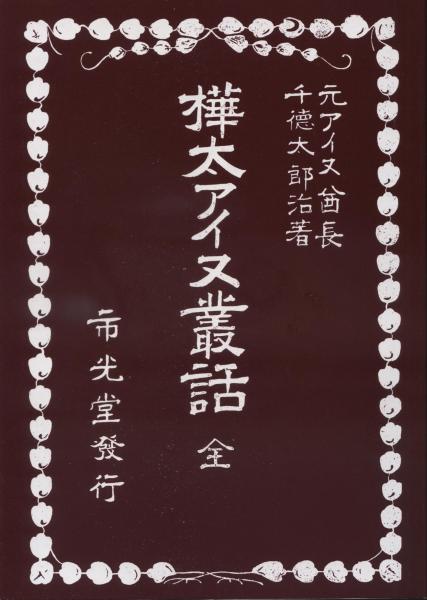 元アイヌ酋長
千徳太郎治著
樺太アイヌ叢話 全
市光堂發行